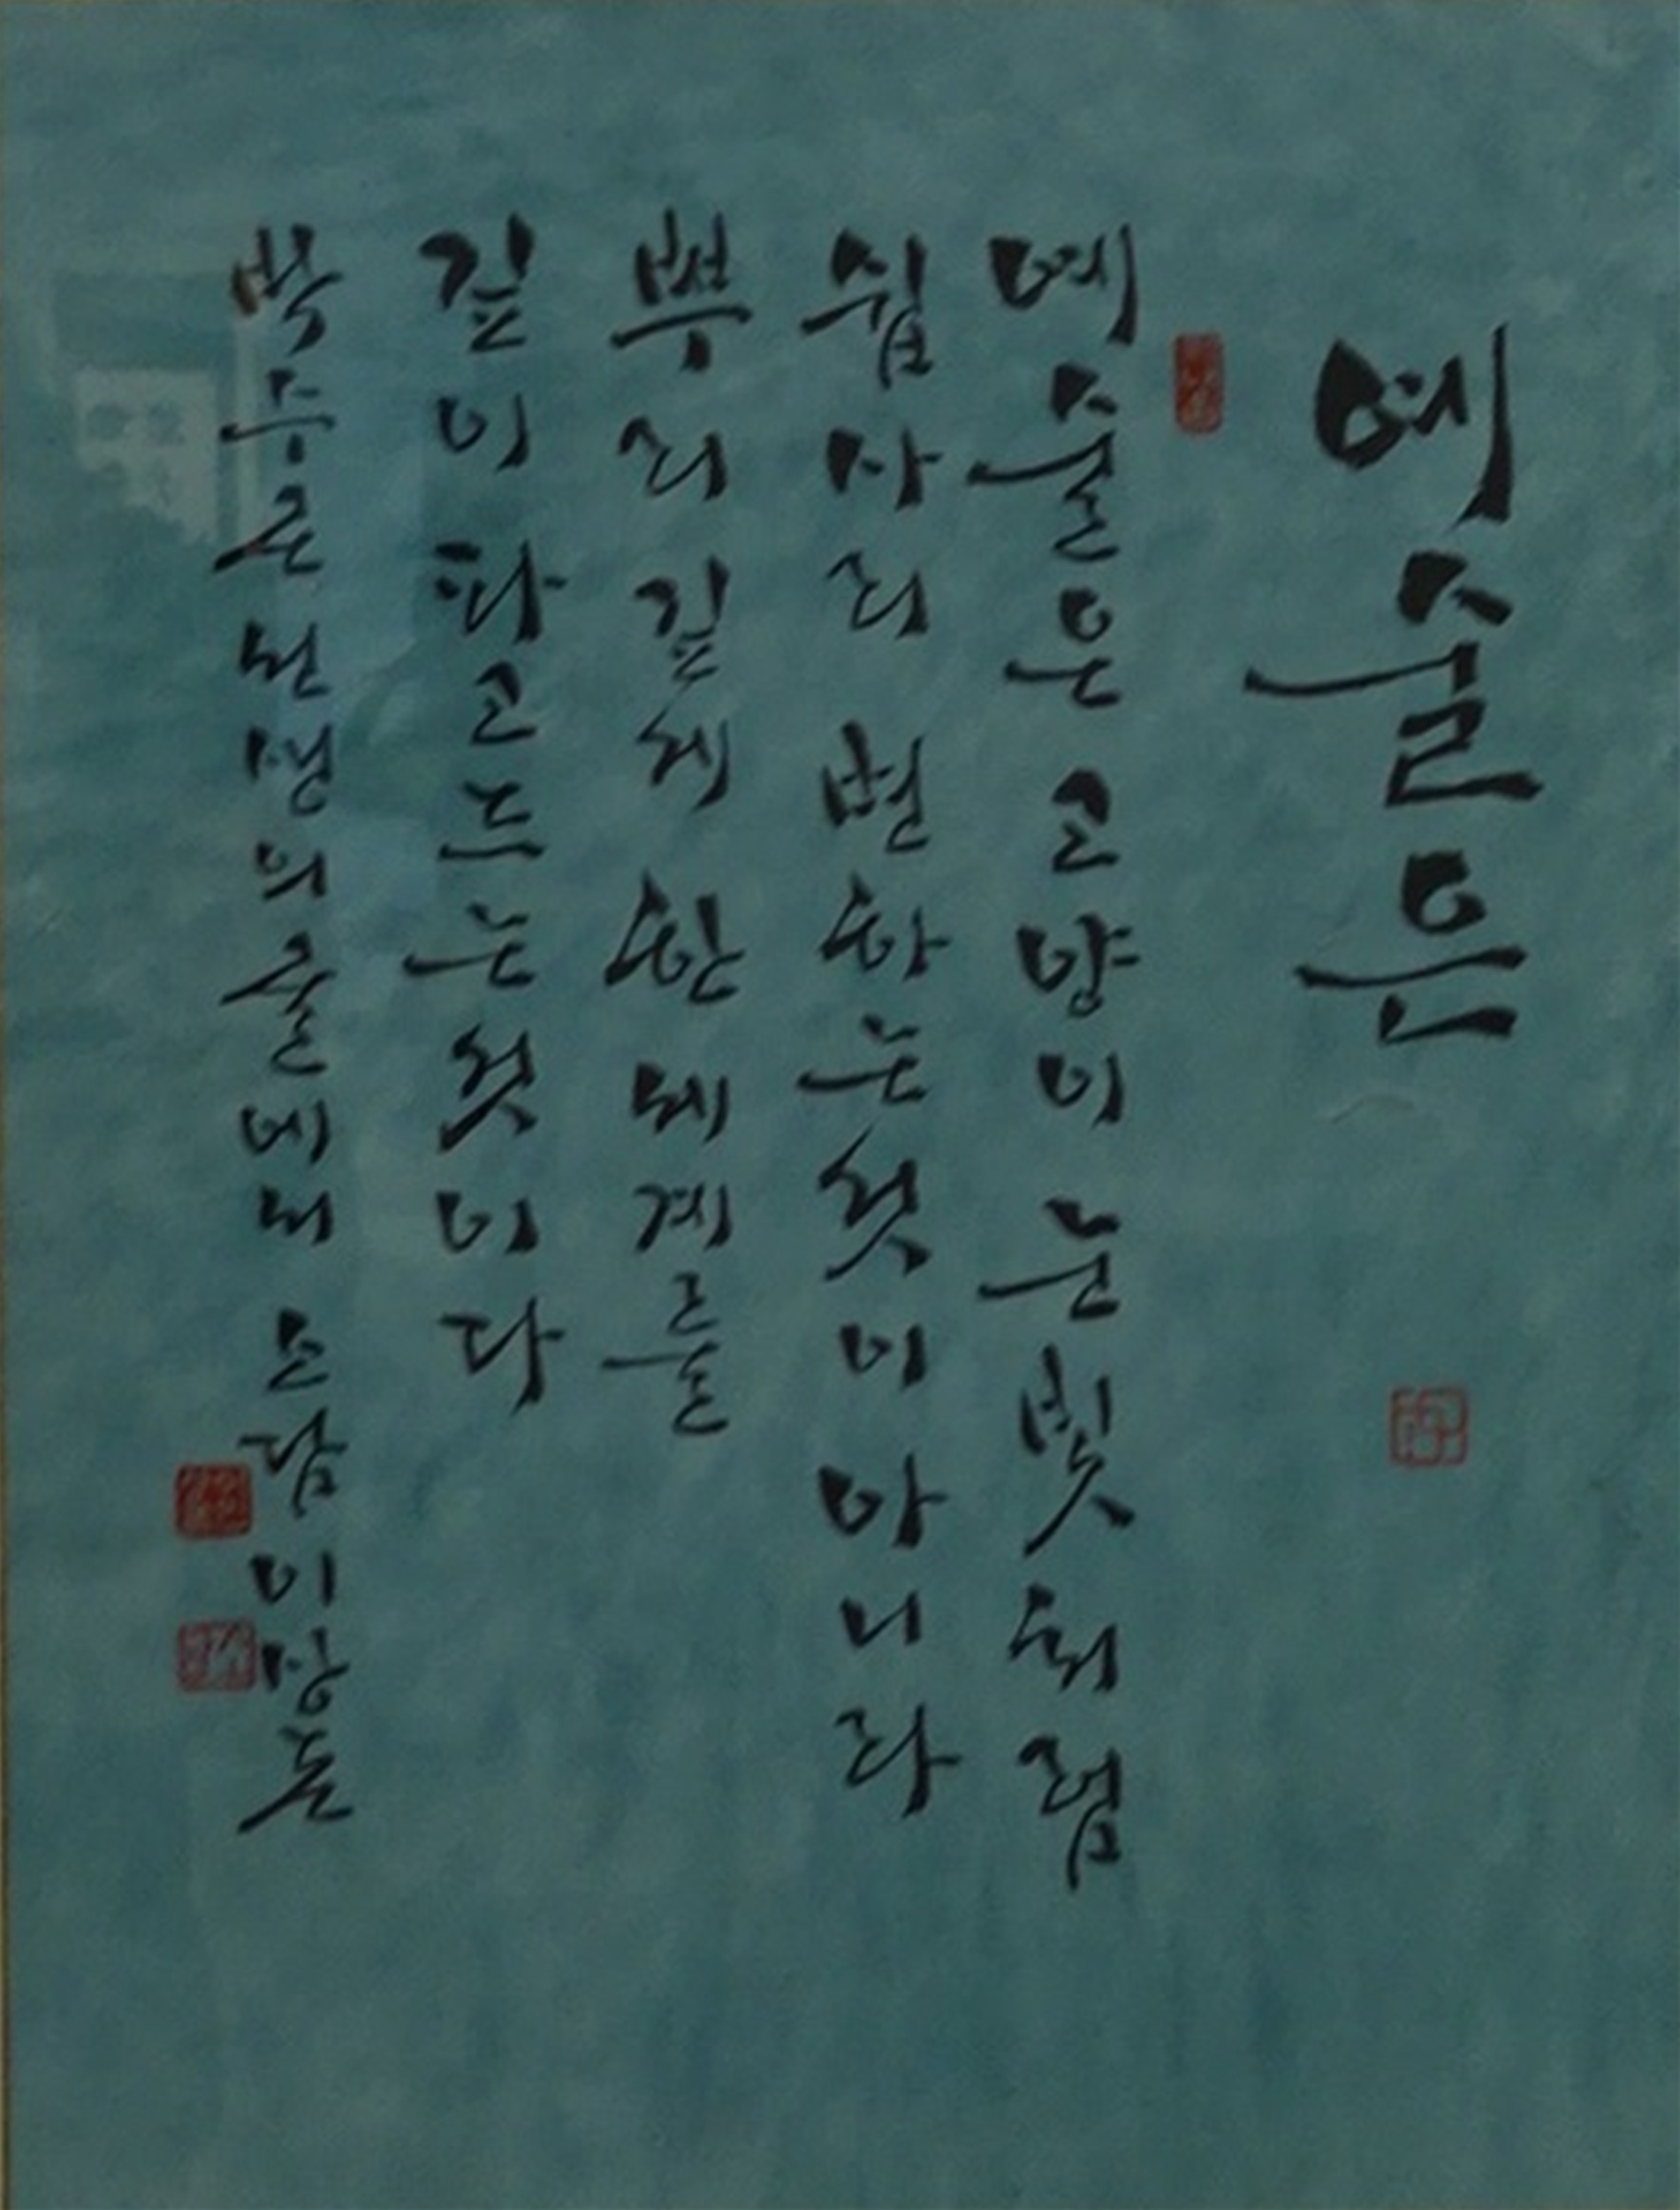 예술은
예술은 고양이 눈빛처럼
쉽사리 변하는 것이 아니라
뿌리 깊게 한 세계를
깊이 파고드는 것이다
박수근 선생의 글에서 소담 이상돈